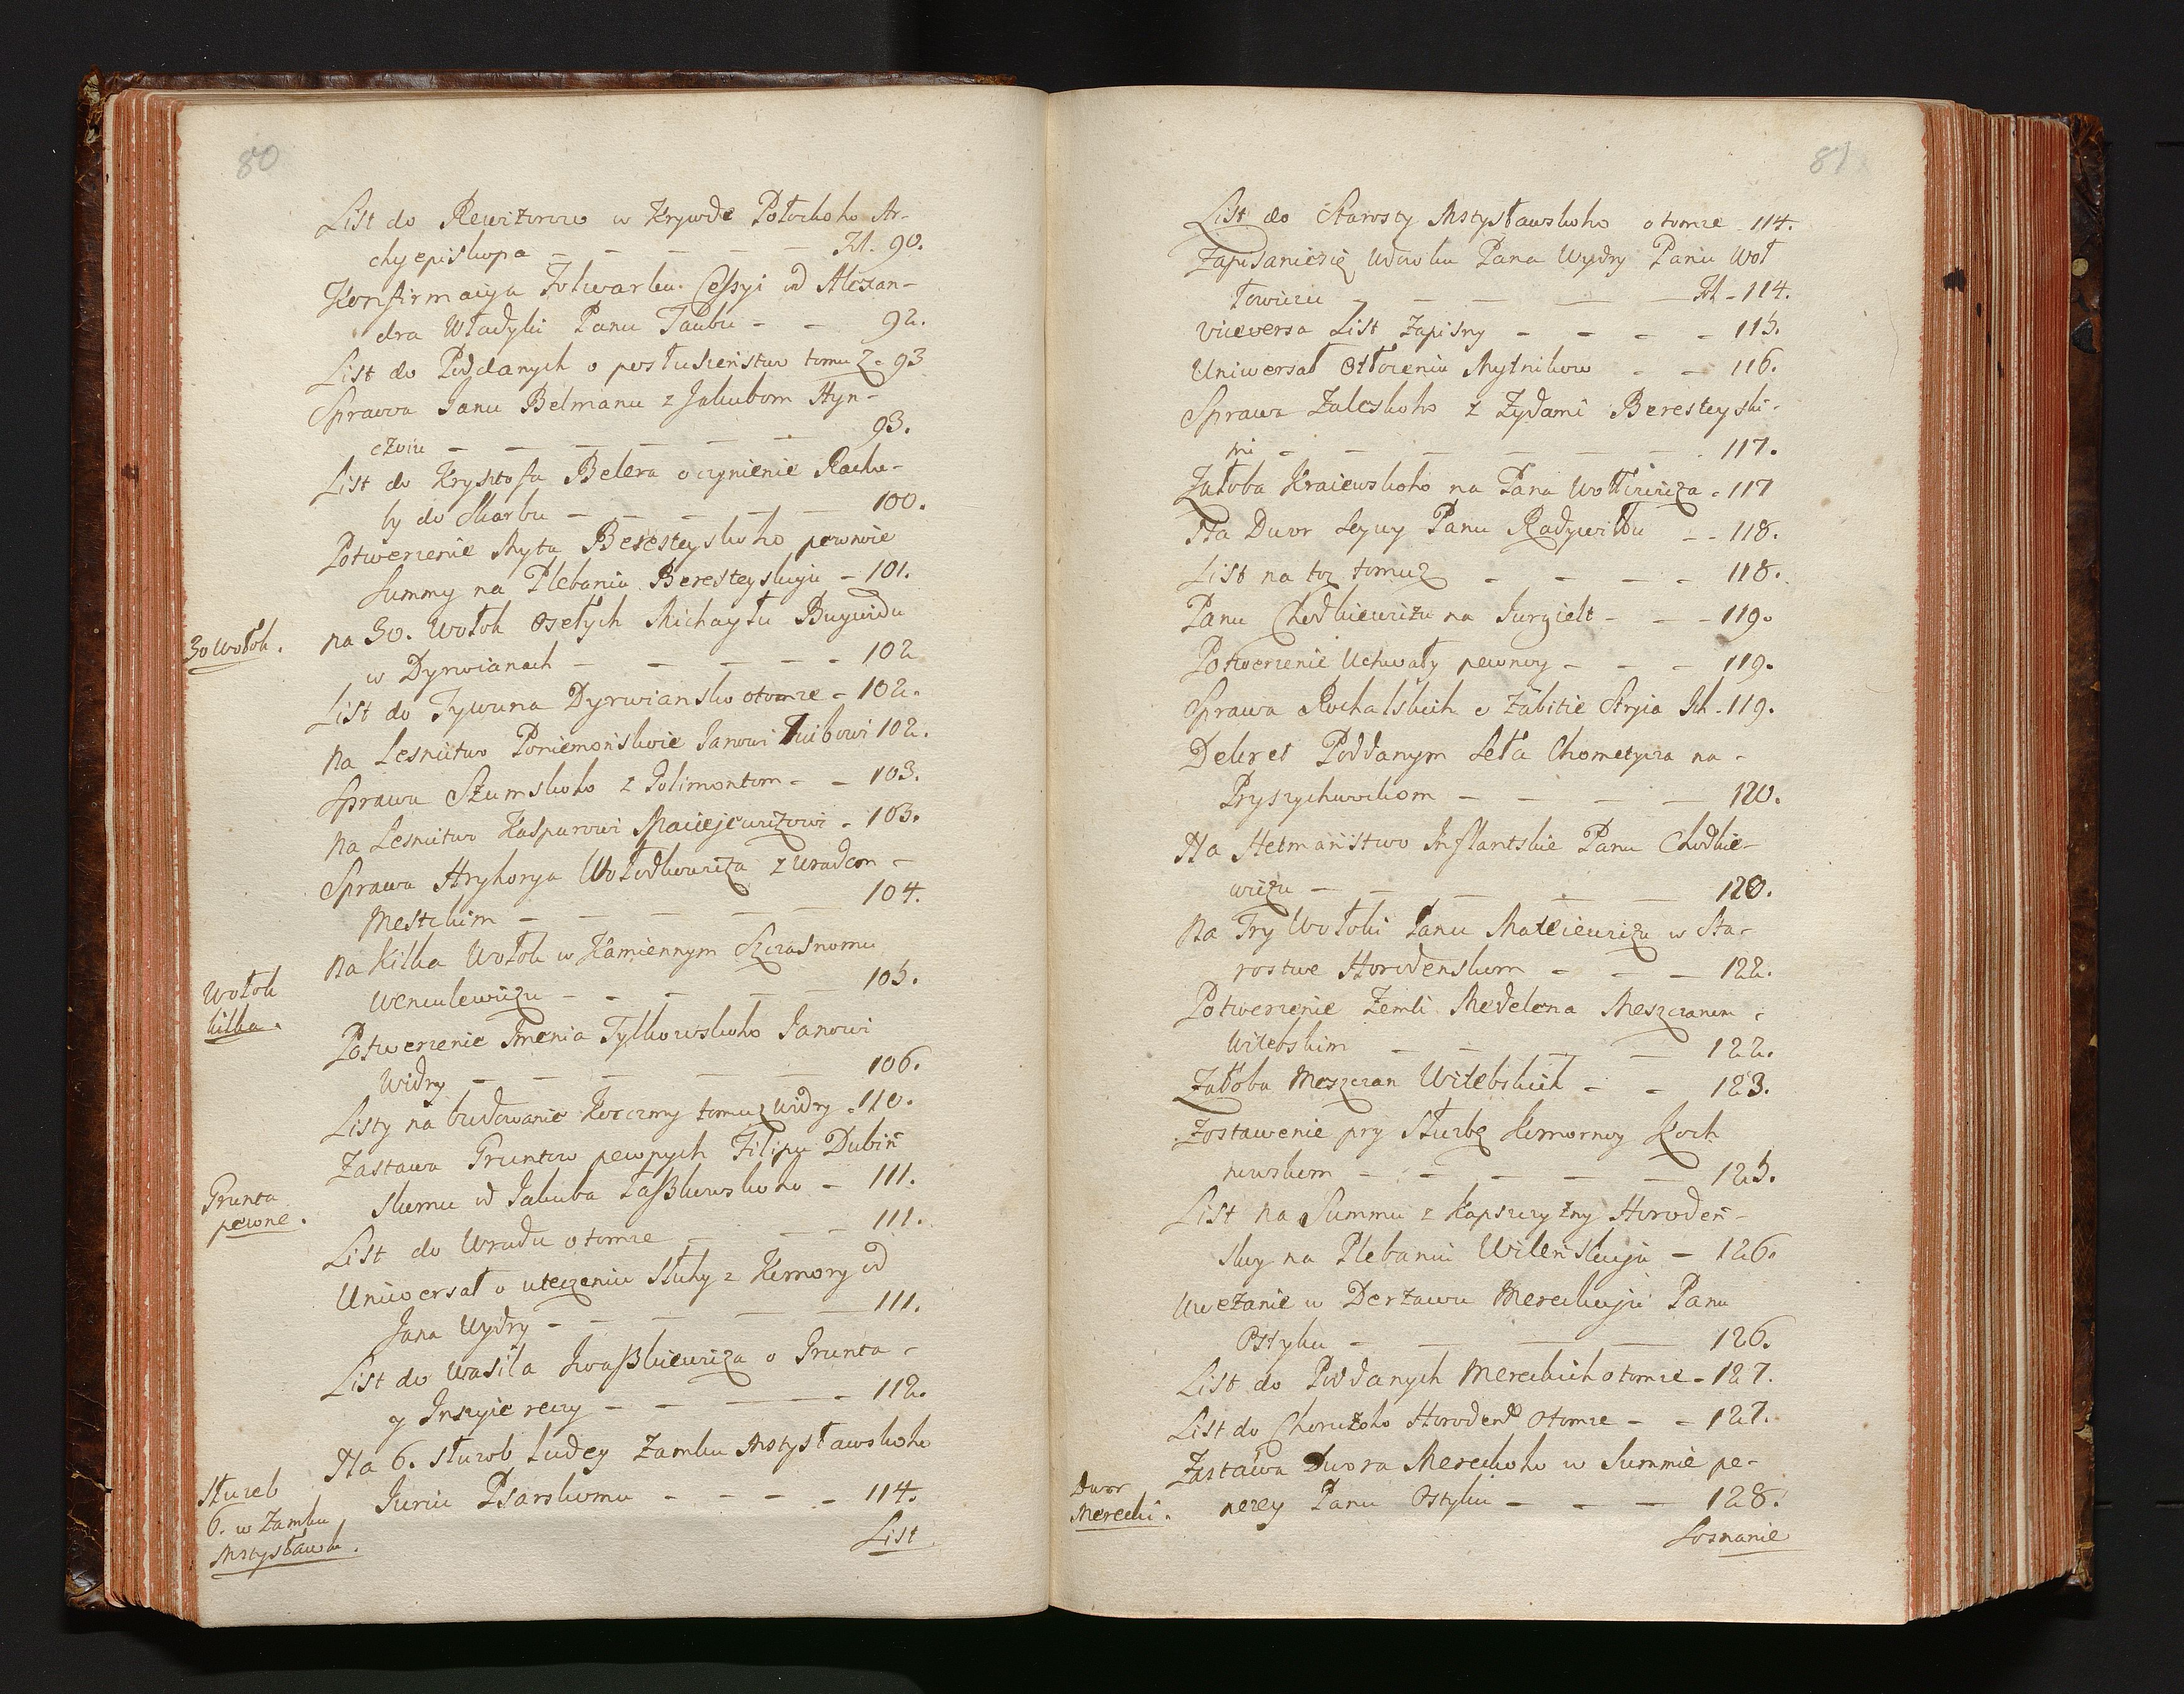 80
List do Rewizorow w Krywde Połockoho Ar-
chyepiskopa - - - - - Fol. 90.
Konfirmacya Folwarku Cessyi od Alexan-
dra Władyki Panu Taubu - - 92.
List do Poddanych o posłuszeństwo tomuż - 93
Sprawa Janu Belmanu z Jakubom Hyn-
czoiu - - - - - - 93.
List do Krysztofa Belera o czynienie Rachu-
by do Skarbu - - - - - 100.
Potwerzenie Myta Beresteyskoho pewnoie
Summy na Plebaniu Beresteyskuju - 101.
30 Wołok.
na 30. Wołok Osełych Michayłu Buywidu
w Dyrwianach - - - - - 102
List do Tywuna Dyrwiansko otomże - 102.
Na Lesnictwo Poniemońskoie Janowi Kuibowi 102.
Sprawa Szumskoho z Golimontom - - 103.
Na Lesnictwo Kasparowi Maciejewiczowi - 103.
Sprawa Hryhorya Wołodkowicza z Uradom -
Mestckim - - - - - 104.
Wołok
kilka.
Na Kilka Wołok w Kamiennym Szczasnomu
Wenculewiczu - - - - - 105.
Potwerzenie Imenia Tylkowskoho Janowi
Widry - - - - - - 106.
Listy na budowanie Korczmy tomuż Widry - 110.
Grunta
pewne.
Zastawa Gruntow pewnych Filipu Dubiń
skomu od Jakuba Łaszkowskoho - 111.
List do Uradu otomże - - - 111.
Uniwersał o uteczeniu Słuhy z Komory od
Jana Wydry - - - - - 111.
List do Wasila Iwaszkiewicza o Grunta -
y Inszyie reczy - - - - - 112.
Służeb
6. w Zamku
Mstysławsk.
Na 6. służob ludey Zamku Mstysławskoho
Juriu Psarskomu - - - - 114.
List
81
List do Starosty Mstysławskoho otomże 114.
Zapisanieżię Udwoku Pana Wydry Panu Woł
łowiczu - - - - - Fol - 114.
Viceversa List Zapisny - - - - 115.
Uniwersał Ostłoreniu Mytnikow - - 116.
Sprawa Zaleskoho z Żydami Beresteyski-
mi - - - - - - - 117.
Żałoba Kraiewskoho na Pana Wołłowicza - 117
Na Dwor Leycy Panu Radywiłłu - - 118.
List na toż tomuż - - - - 118.
Panu Chodkiewiczu na Jurgielt - - - 119.
Potwerzenie Uchwały pewnoy - - - 119.
Sprawa Rochalskich o Zabitie Stryia Ich - 119.
Dekret Poddanym Seła Chometycza na -
Pryszychwockom - - - - 120.
Na Hetmaństwo Inflantskie Panu Chodkie-
wiczu - - - - - 120.
Na Try Wołoki Panu Mateiewiczu w Sta-
rostwe Horodenskom - - - 122.
Potwerzenie Zemli Medelena Meszczanom -
Witebskim - - - - 122.
Żałoba Meszczan Witebskich - - 123.
Zostawenie pry służbę Komornoy Koch
nowskom - - - - - 125.
List na Summu z Kapszczyzny Horodeń-
skoy na Plebaniu Wilenskuju - 126.
Uweżanie w Derżawu Mereckuju Panu
Ostyku - - - - 126.
List do Poddanych Mereckich otomże - 127.
List do Choružoho Horodensk otomże - - 127.
Dwor
Merecki.
Zastawa Dwora Mereckoho w Summie pe-
wney Panu Ostyku - - - 128.
Soznanie